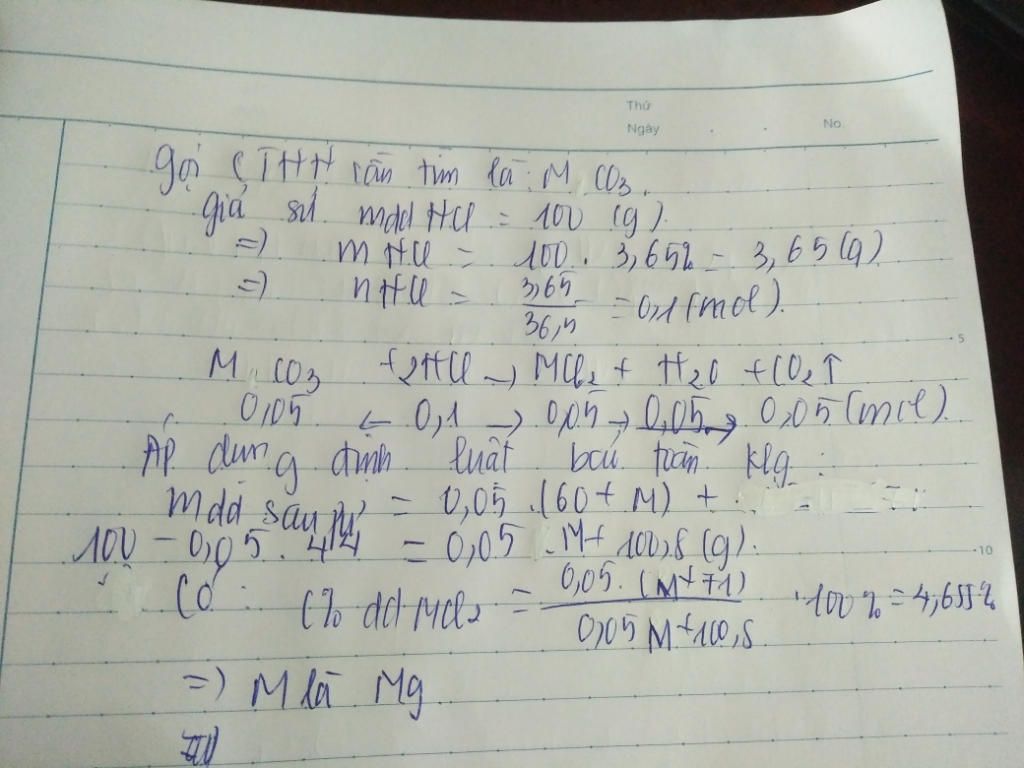 Thứ
Ngày . . No.
Gọi CTHH cần tìm là: M CO3.
Giả sử mdd HCl = 100 (g).
=) m HCl = 100 . 3,65% = 3,65 (g)
=) n HCl = 3,65/36,5 = 0,1 (mol).
5
M CO3 + 2HCl → MCl2 + H2O + CO2 ↑
0,05 ← 0,1 → 0,05 → 0,05 → 0,05 (mol).
Áp dụng định luật bảo toàn klg :
mdd sau pứ = 0,05 . (60 + M) +
100 - 0,05 . 44 = 0,05 . M + 100,8 (g).
10
Có : C% dd MCl2 = 0,05 . (M + 71)/0,05 M + 100,8 . 100% = 4,655%
=) M là Mg